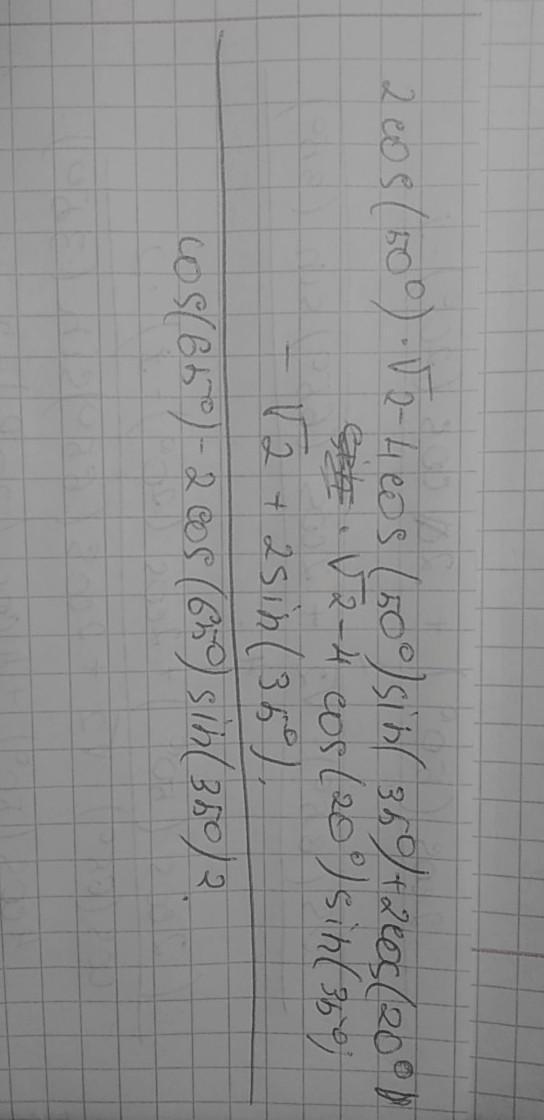 2cos(50°)·√2-4cos(50°)sin(35°)+2cos(20°)
·√2-4cos(20°)sin(35°)
-√2+2sin(35°).
cos(65°)-2cos(65°)sin(35°)2.